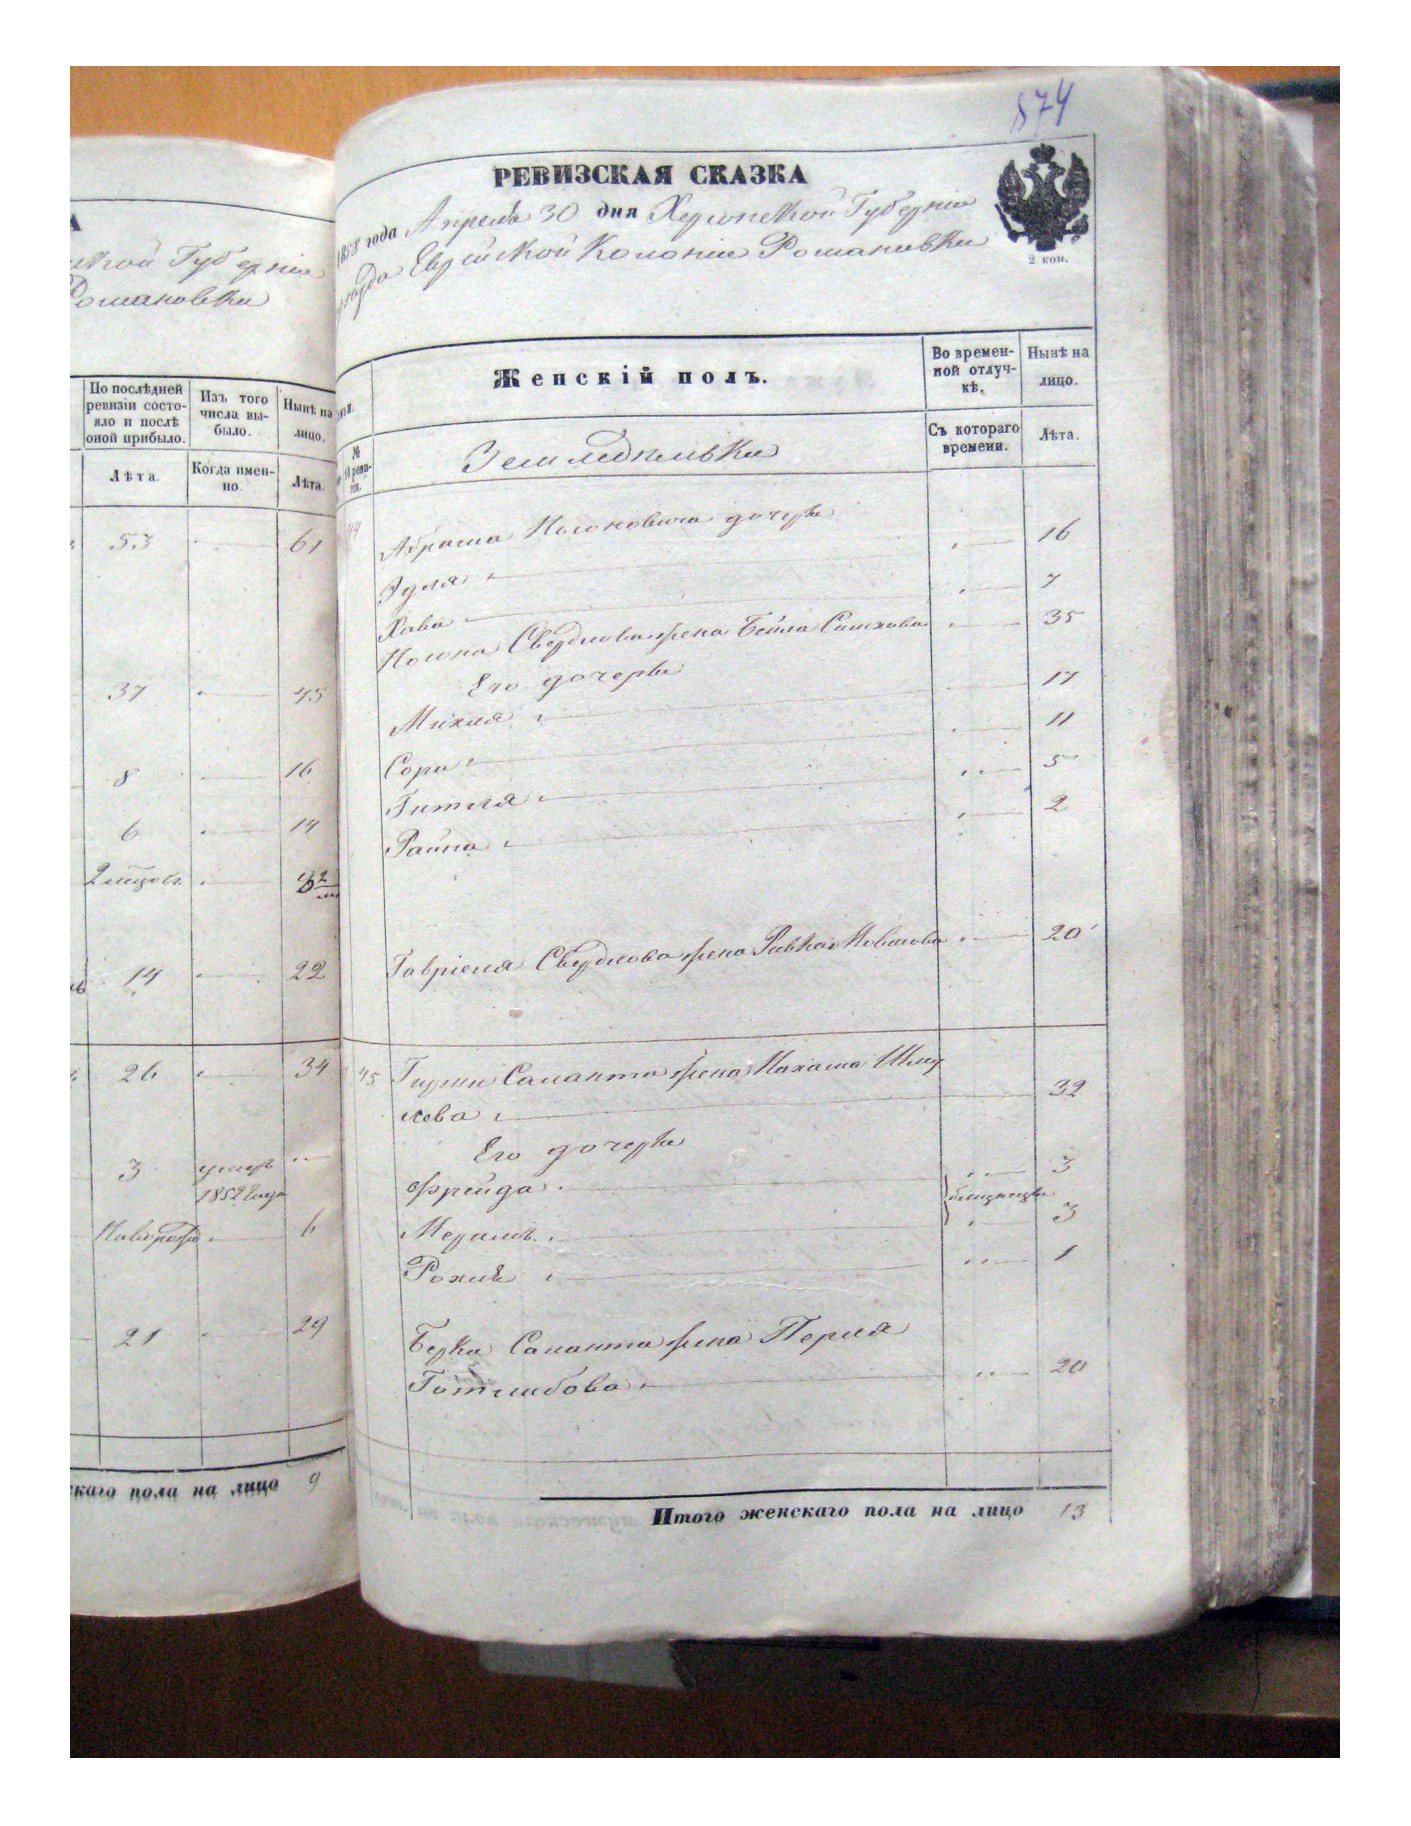 А
Губерніи
Романовки
По послѣдней
ревизіи состо-
яло и послѣ
оной прибыло.
Изъ того
числа вы-
было.
Нынѣ на
лицо.
Лѣта.
Когда имен-
но.
Лѣта.
53 61
37 45
8 16
6 14
14 22
26 34
3 умер
1852 года
Новорож 6
21 29
скаго пола на лицо 9
874
РЕВИЗСКАЯ СКАЗКА
1858 года Апреля 30 дня Херсонской Губерніи
уѣзда Еврейской Колоніи Романовки
2 коп.
Женскій полъ.
Во времен-
ной отлуч-
кѣ.
Нынѣ на
лицо.
№
10 реви-
зіи.
Земледельки
Съ котораго
времени.
Лѣта.
44 Абрама Носоновича дочери
Эдля 16
Хава 7
Носона Свердлова жена Бейла Симхова 35
Его дочери
Михля 17
Сора 11
Гитля 5
Райна 2
Гавріеля Свердлова жена Ривка 20
45 Саланта жена Нахама Шму
лева 32
Его дочери
Фрейда 3
близнецы
3
Рохля 1
Берки Саланта жена Перля
Готлибова 20
Итого женскаго пола на лицо 13